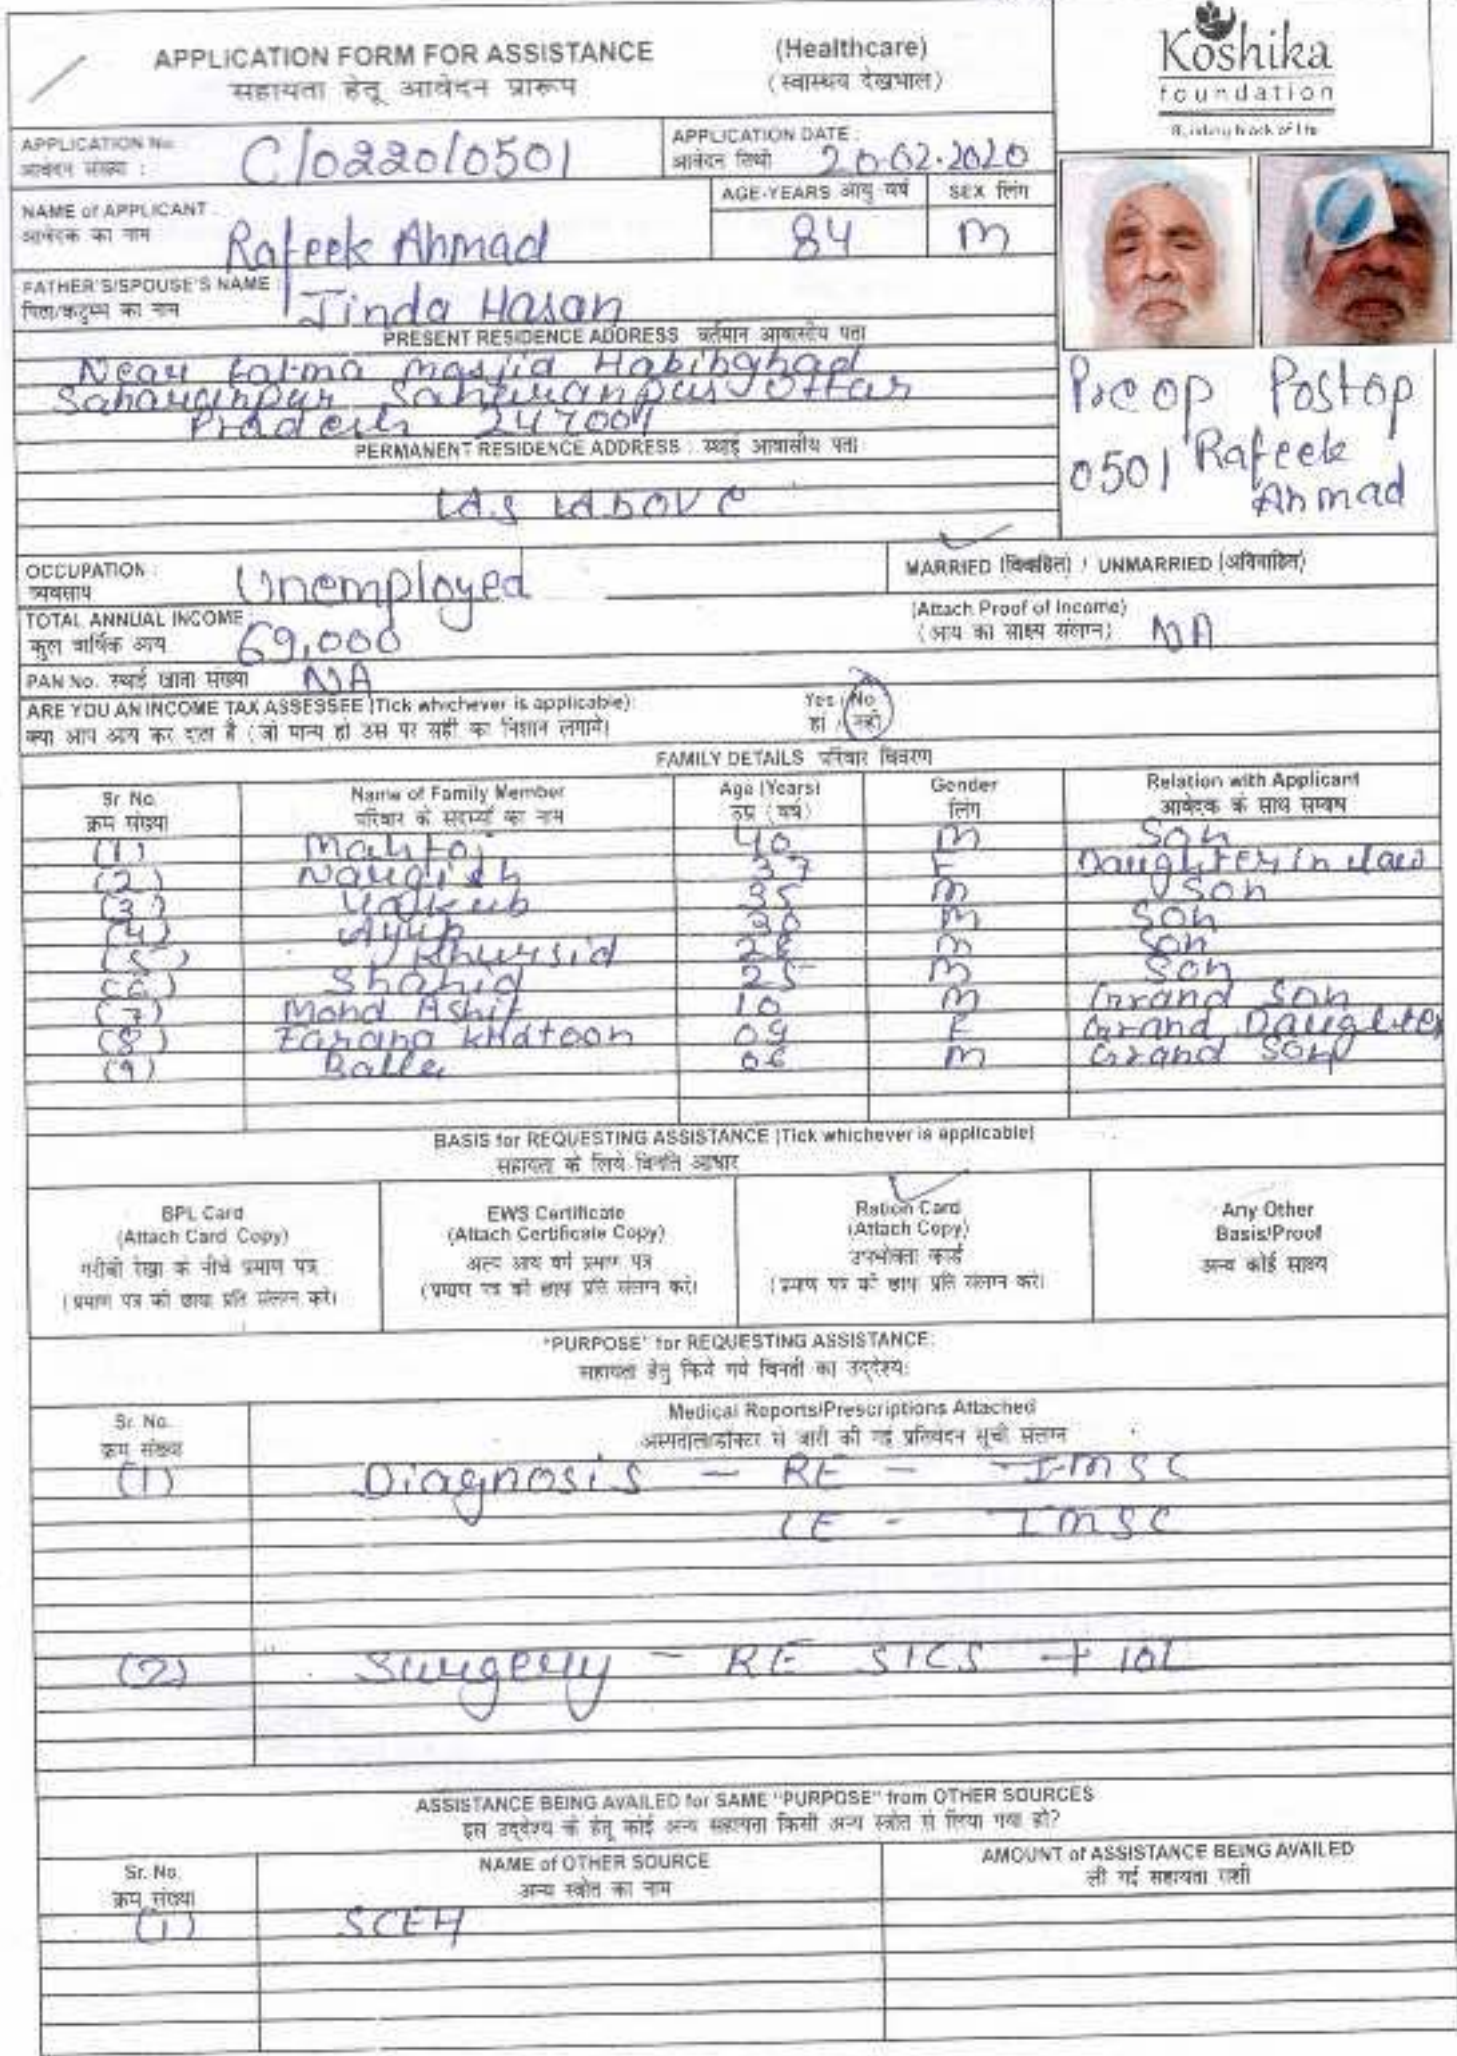 APPLICATION FORM FOR ASSISTANCE (Healthcare)
सहायता हेतू आवेदन प्रारूप (स्वास्थय देखभाल)
Koshika
foundation
APPLICATION No. : C/0220/0501
आवेदन संख्या :
APPLICATION DATE : 20.02.2020
आवेदन तिथी
NAME of APPLICANT : Rafeek Ahmad
आवेदक का नाम
AGE-YEARS आयु वर्ष 84
SEX लिंग M
FATHER'S/SPOUSE'S NAME : Jinda Hasan
पिता/कटुम्ब का नाम
PRESENT RESIDENCE ADDRESS वर्तमान आवासीय पता
Near fatma masjid Habibghad
Saharanpur Saharanpur Uttar
Pradesh 247001
PERMANENT RESIDENCE ADDRESS : स्थाई आवासीय पता
as above
Preop Postop
0501 Rafeek
Ahmad
OCCUPATION : Unemployed
व्यवसाय
MARRIED (विवाहित) / UNMARRIED (अविवाहित)
TOTAL ANNUAL INCOME 69,000
कुल वार्षिक आय
(Attach Proof of Income) NA
(आय का साक्ष्य संलग्न)
PAN No. स्थाई खाता संख्या NA
ARE YOU AN INCOME TAX ASSESSEE (Tick whichever is applicable) Yes / No
क्या आप आय कर दाता है (जो मान्य हो उस पर सही का निशान लगाये) हां / नहीं
FAMILY DETAILS परिवार विवरण
Sr. No. Name of Family Member Age (Years) Gender Relation with Applicant
क्रम संख्या परिवार के सदस्यों का नाम उम्र (वर्ष) लिंग आवेदक के साथ सम्बंध
(1) Mahtaj 40 M Son
(2) Nargish 37 F Daughter in law
(3) Yakub 35 M Son
(4) Ayub 30 M Son
(5) Khursid M Son
(6) Shahid 25 M Son
(7) Mohd Ashif 10 M Grand Son
(8) Farana Khatoon 09 F Grand Daughter
(9) 06 M Grand Son
BASIS for REQUESTING ASSISTANCE (Tick whichever is applicable)
सहायता के लिये विनति आधार
BPL Card
(Attach Card Copy)
गरीबी रेखा के नीचे प्रमाण पत्र
(प्रमाण पत्र की छाया प्रति संलग्न करे)
EWS Certificate
(Attach Certificate Copy)
अल्प आय वर्ग प्रमाण पत्र
(प्रमाण पत्र की छाया प्रति संलग्न करे)
Ration Card
(Attach Copy)
उपभोक्ता कार्ड
(प्रमाण पत्र की छाया प्रति संलग्न करे)
Any Other
Basis/Proof
अन्य कोई साक्ष्य
"PURPOSE" for REQUESTING ASSISTANCE:
सहायता हेतु किये गये विनती का उद्देश्य:
Sr. No. Medical Reports/Prescriptions Attached
क्रम संख्या अस्पताल/डॉक्टर से जारी की गई प्रतिवेदन सूची संलग्न
(1) Diagnosis - RE - IMSC
LE - IMSC
(2) Surgery - RE SICS + IOL
ASSISTANCE BEING AVAILED for SAME "PURPOSE" from OTHER SOURCES
इस उद्देश्य के हेतू कोई अन्य सहायता किसी अन्य स्त्रोत से लिया गया हो?
Sr. No. NAME of OTHER SOURCE AMOUNT of ASSISTANCE BEING AVAILED
क्रम संख्या अन्य स्त्रोत का नाम ली गई सहायता राशी
(1) SCEH